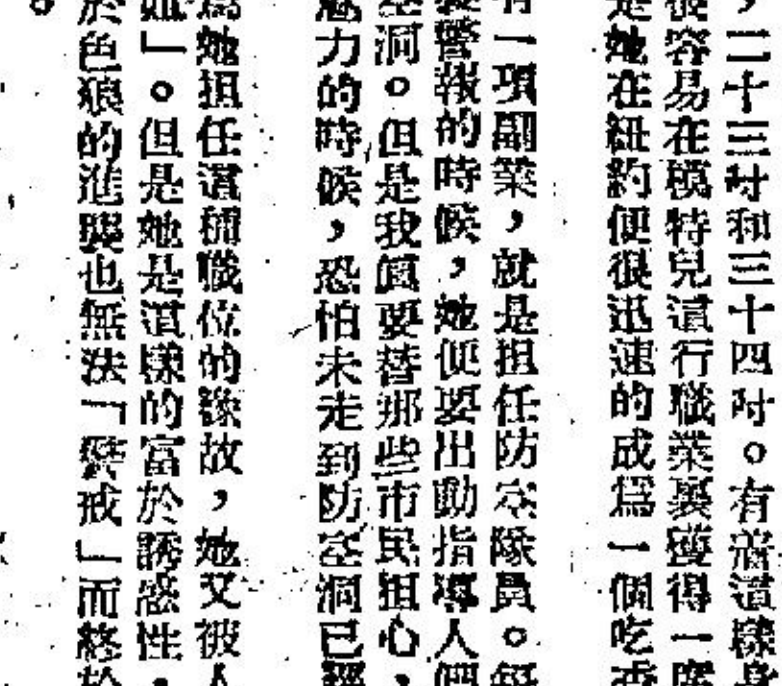 ，二十三吋和三十四吋。有着這樣身
很容易在模特兒這行職業裏獲得一席
是她在紐約便很迅速的成爲一個吃香
有一項副業，就是担任防空隊員。每
襲警報的時候，她便要出動指導人們
空洞。但是我眞要替那些市民担心，
魅力的時候，恐怕未走到防空洞已經
爲她担任這種職位的緣故，她又被人
她」。但是她是這樣的富於誘惑性，
於色狼的進襲也無法「警戒」而終於
。